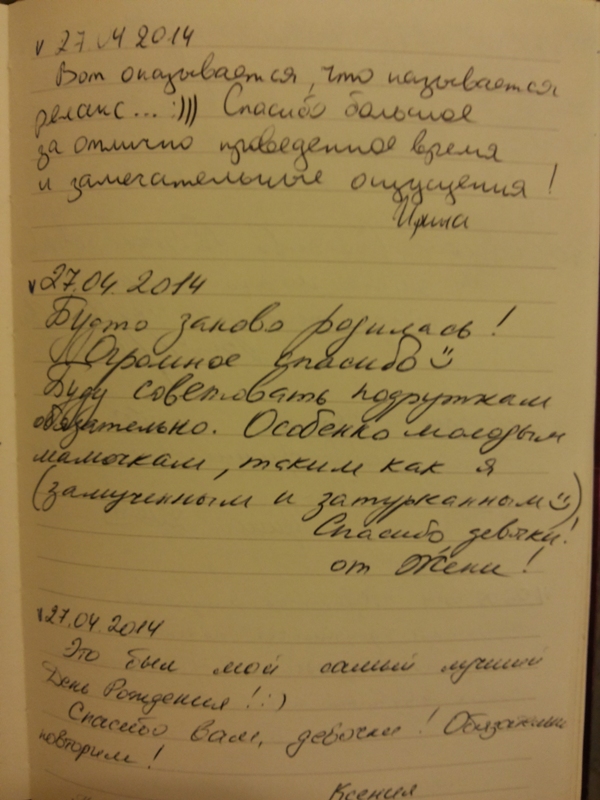 v 27.04 2014
Вот оказывается, что называется
релакс... :))) Спасибо большое
за отлично проведенное время
и замечательные ощущения!
Ирина
v 27.04.2014
Будто заново родилась!
Огромное спасибо
Буду советовать подружкам
обязательно. Особенно молодым
мамочкам, таким как я
(замученным и затурканным)
Спасибо, девчки!
от Жени!
v 27.04.2014
Это был мой самый лучший
День Рождения! :)
Спасибо вам, девочки! Обязательно
повторим!
Ксения